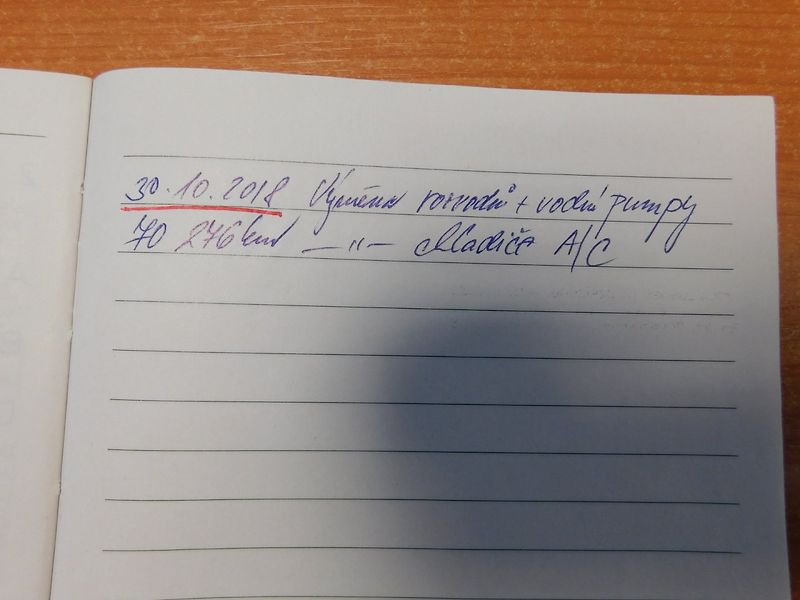 30.10.2018 Výměna rozvodů + vodní pumpy
70 276 km —〃— chladiče A/C